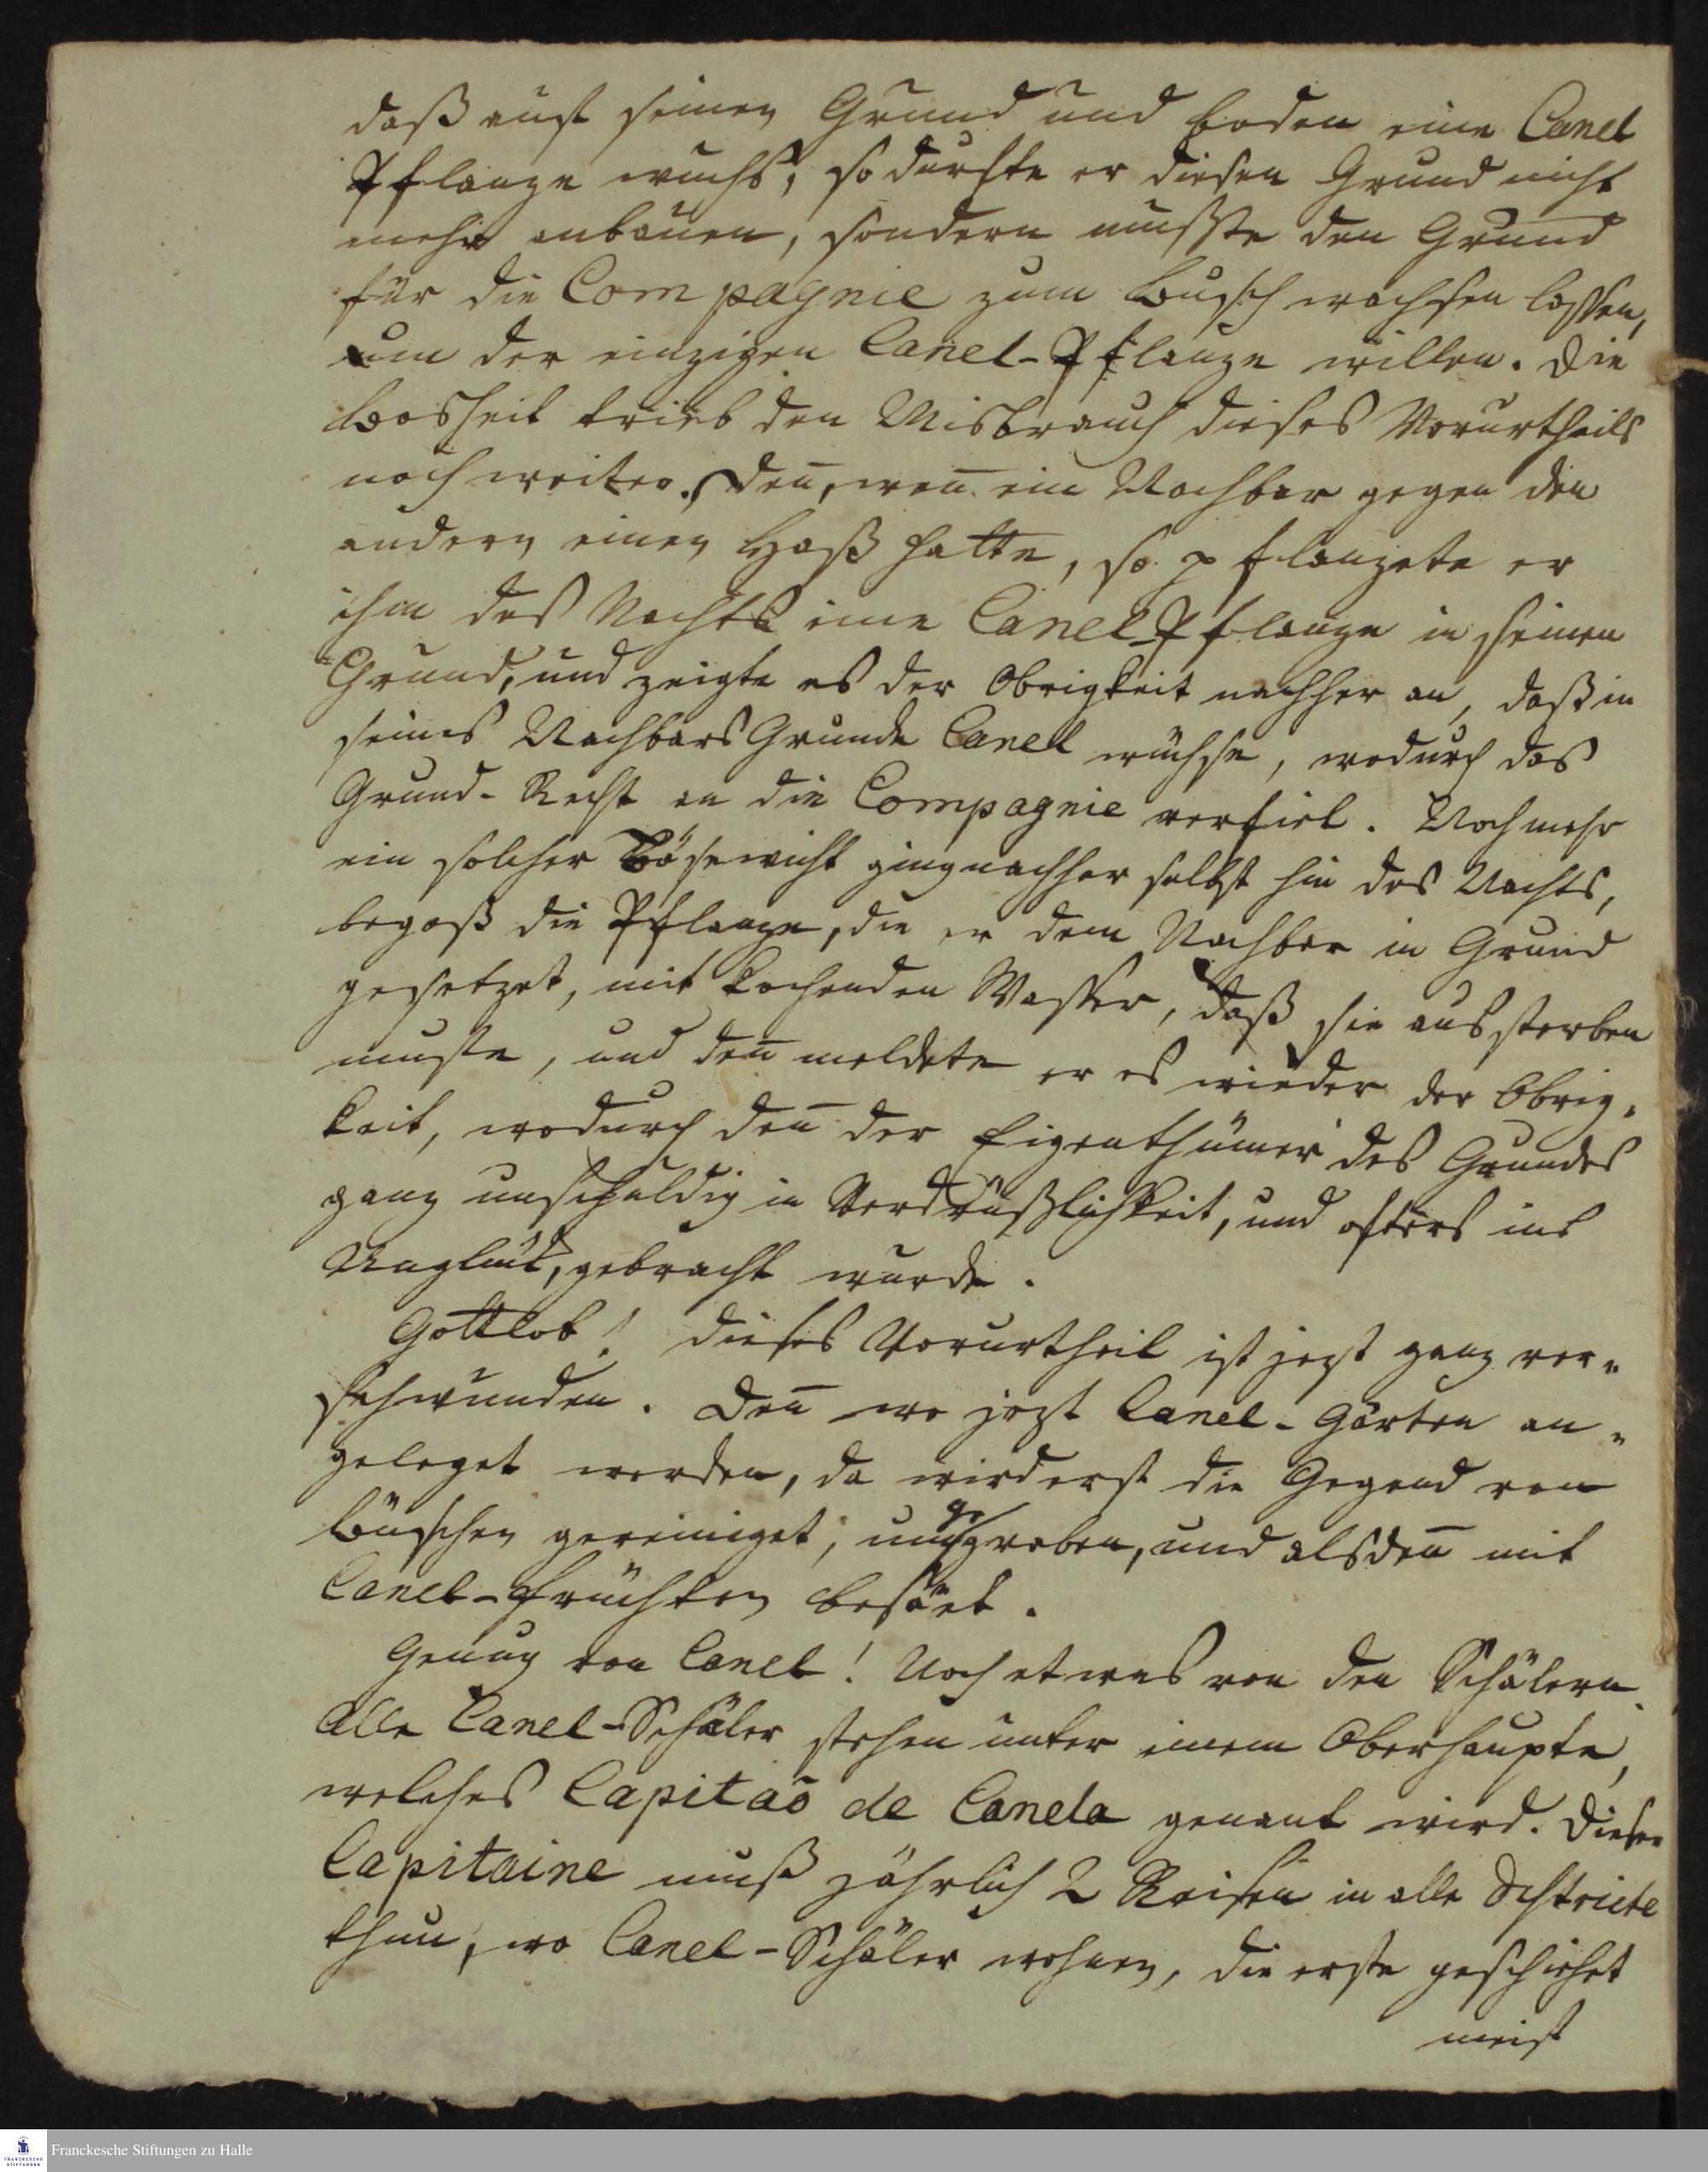 daß auf seinen Grund und boden eine Canel
Pflanze wuchs, so durfte er diesen Grund nicht
mehr anbauen, sondern mußte den Grund
für die Compagnie zum Busch wachsen lassen,
um der einzigen Canel-Pflanze willen. Die
Bosheit trieb den Misbrauch dieses Vorurtheils
noch weiter. Den̄, wen̄ ein Nachbar gegen den
andern einen Haß hatte, so pflanzete er
ihm des Nachts eine Canel-Pflanze in seinen
Grund, und zeigte es der Obrigkeit nachher an, daß in
seines Nachbars Grunde Canel wüchse, wodurch das
Grund-Recht an die Compagnie verfiel. Noch mehr
ein solcher Bösewicht ging nachher selbst hin des Nachts,
begoß die Pflanze, die er dem Nachbar in Grund
gesetzet, mit kochenden Wasser, daß sie aussterben
muste, und den̄ meldete er es wieder der Obrig-
keit, wodurch den̄ der Eigenthümer des Grundes
ganz unschuldig in Verdrüßlichkeit, und öfters ins
Unglük, gebracht wurde.
Gottlob! dieses Vorurtheil ist jezt ganz ver-
schwunden. Den̄ wo jezt Canel-Gärten an-
geleget werden, da wird erst die Gegend von
Büschen gereiniget, umgegraben, und alsden̄ mit
Canel-Früchten besäet.
Genug von Canel! Noch etwas von den Schälern.
Alle Canel-Schäler stehen unter einem Oberhaupte,
welches Capitaõ de Canela genant wird. Dieser
Capitaine muß jährlich 2 Reisen in alle Districte
thun, wo Canel-Schäler wohnen, die erste geschiehet
meist
Franckesche Stiftungen zu Halle
FRANCKESCHE
STIFTUNGEN